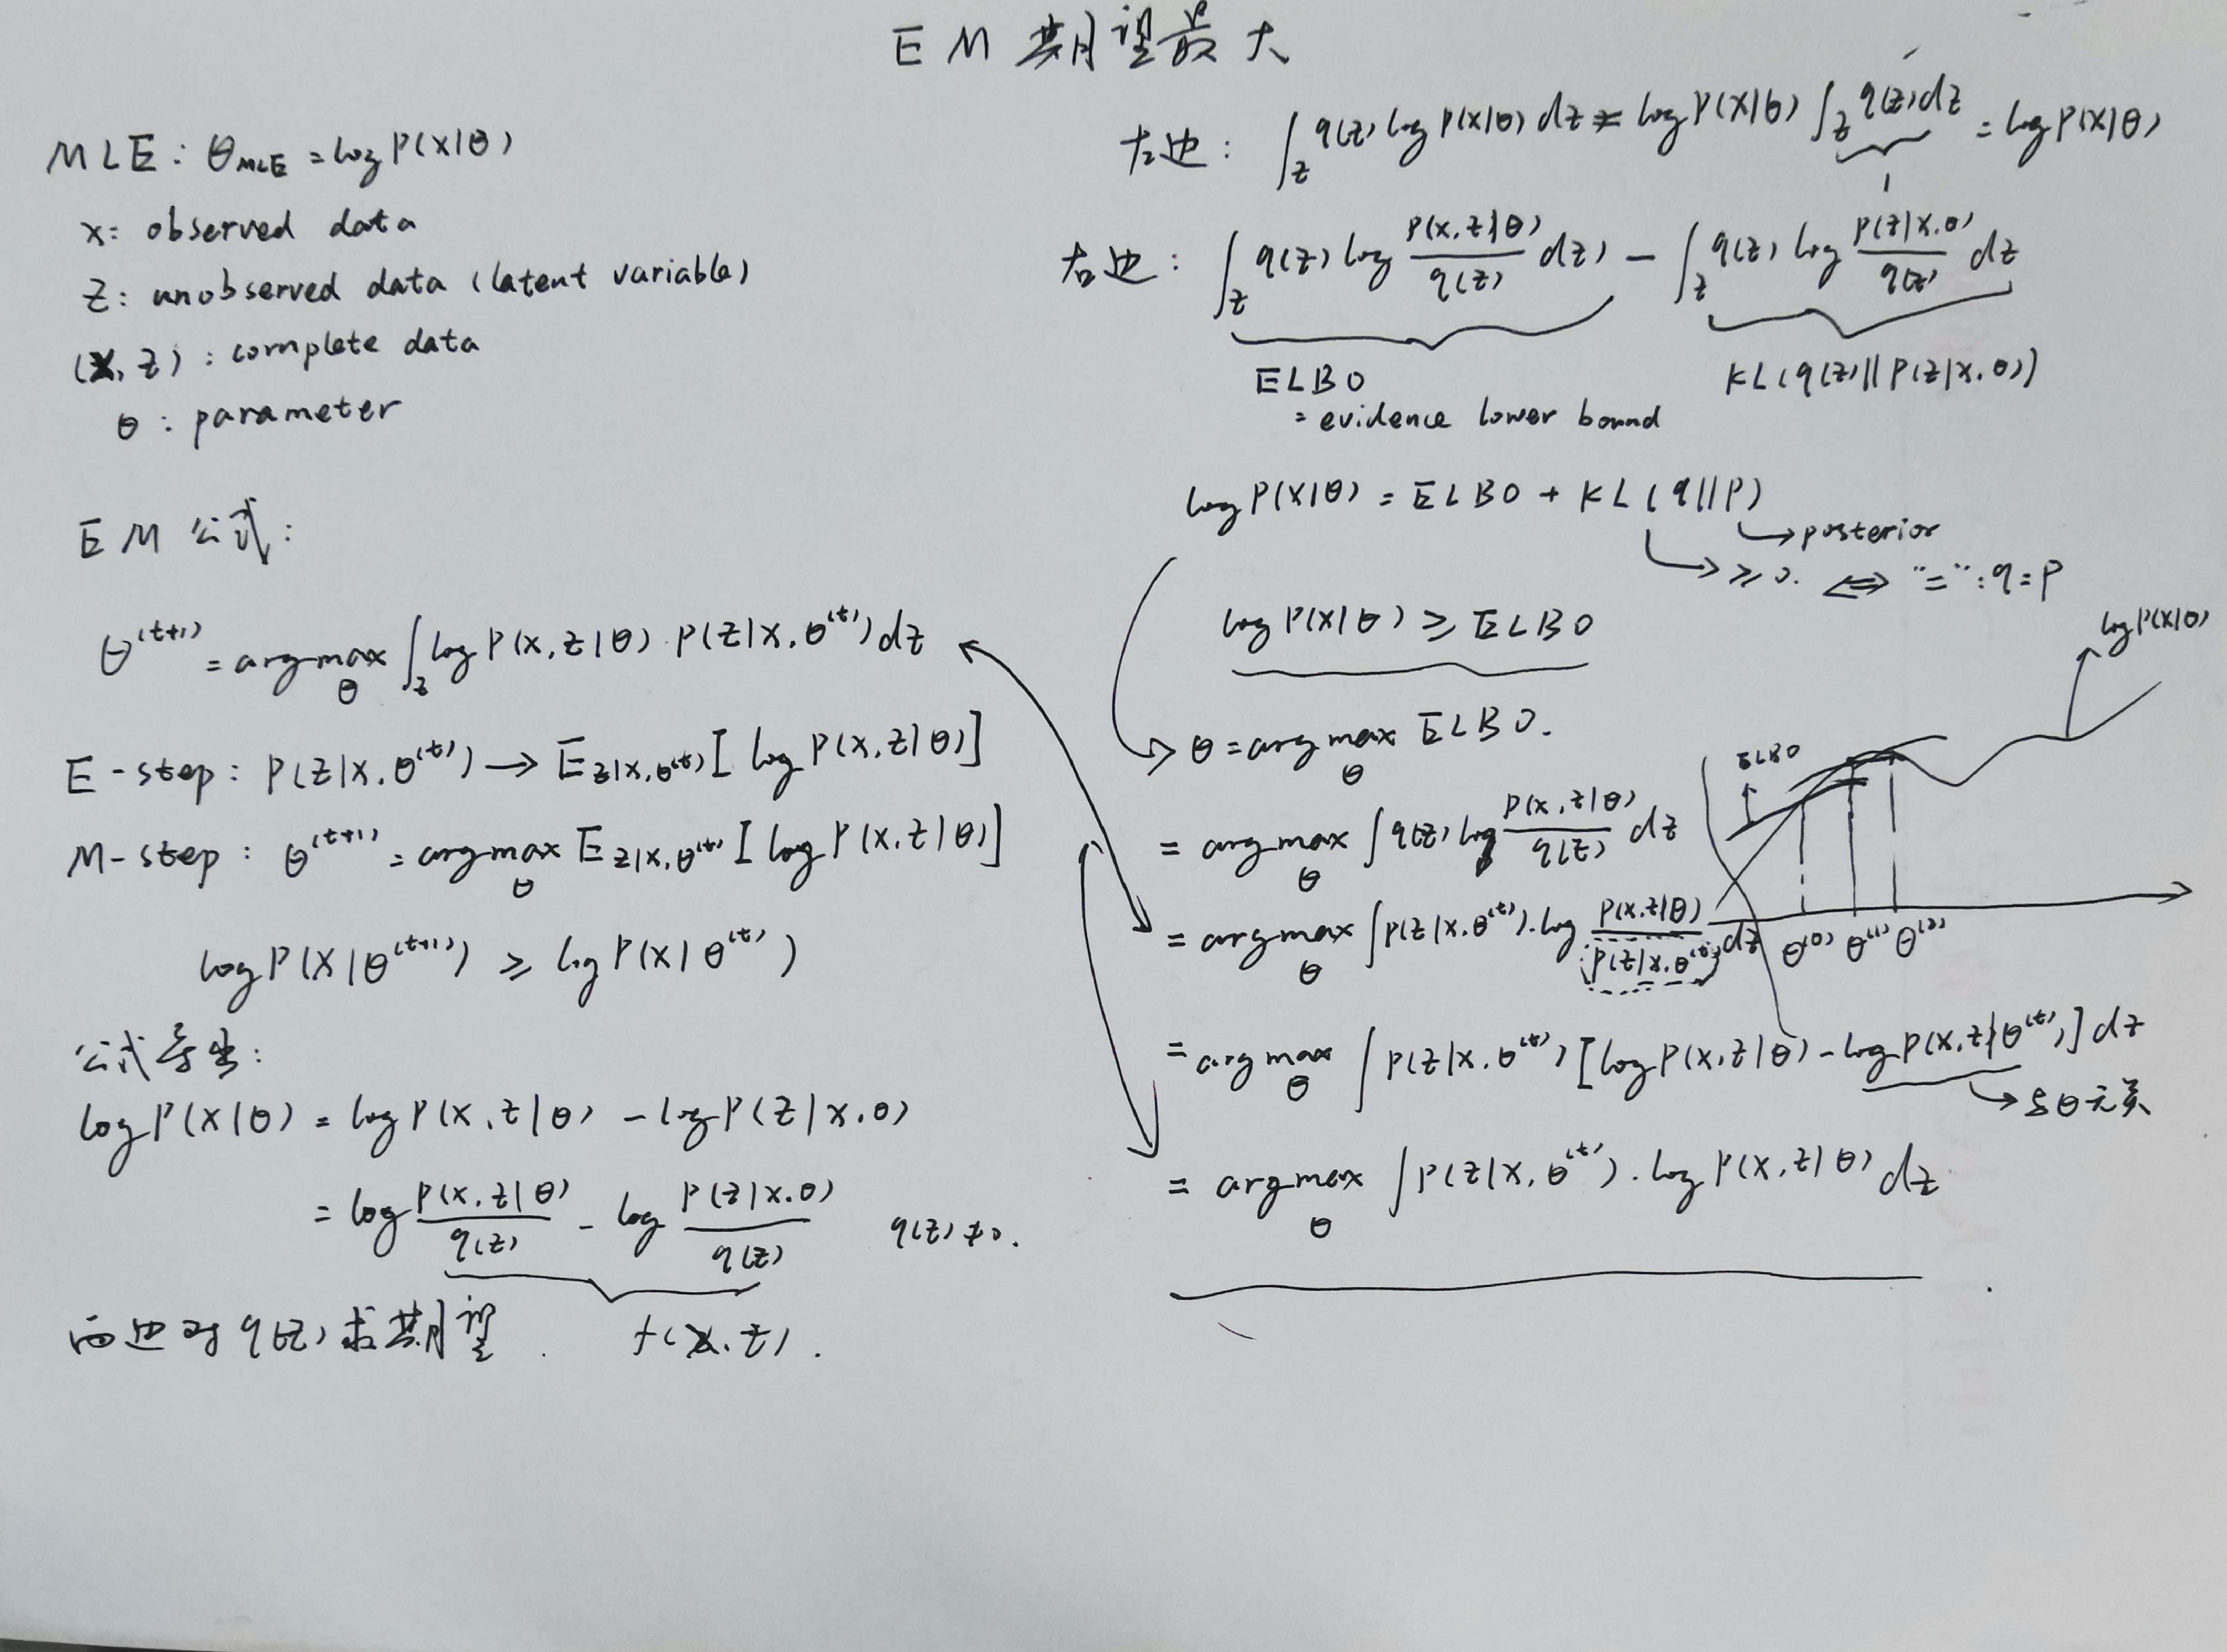 EM 期望最大
MLE: θ_MLE = log P(X|θ)
x: observed data
z: unobserved data (latent variable)
(x, z): complete data
θ: parameter
EM 公式:
θ^(t+1) = argmax_θ ∫_z log P(x,z|θ) · P(z|x,θ^(t)) dz
E-step: P(z|x,θ^(t)) → E_z|x,θ^(t) [log P(x,z|θ)]
M-step: θ^(t+1) = argmax_θ E_z|x,θ^(t) [log P(x,z|θ)]
log P(X|θ^(t+1)) ≥ log P(X|θ^(t))
公式导出:
log P(X|θ) = log P(x,z|θ) - log P(z|x,θ)
= log P(x,z|θ)/q(z) - log P(z|x,θ)/q(z) q(z)≠0.
两边对 q(z) 求期望. f(x,z).
左边: ∫_z q(z) log P(x|θ) dz = log P(X|θ) ∫_z q(z)dz = log P(X|θ)
1
右边: ∫_z q(z) log P(x,z|θ)/q(z) dz) - ∫_z q(z) log P(z|x,θ)/q(z) dz
ELBO KL(q(z)||P(z|x,θ))
= evidence lower bound
log P(X|θ) = ELBO + KL(q||P)
→ posterior
→ ≥0. ⇔ "=": q=P
log P(X|θ) ≥ ELBO
θ = argmax_θ ELBO.
= argmax_θ ∫ q(z) log P(x,z|θ)/q(z) dz
= argmax_θ ∫ P(z|x,θ^(t)) · log P(x,z|θ)/P(z|x,θ^(t)) dz
= argmax_θ ∫ P(z|x,θ^(t)) [log P(x,z|θ) - log P(x,z|θ^(t))] dz
→ 与θ无关
= argmax_θ ∫ P(z|x,θ^(t)) · log P(x,z|θ) dz
log P(X|θ)
ELBO
θ^(0) θ^(1) θ^(2)